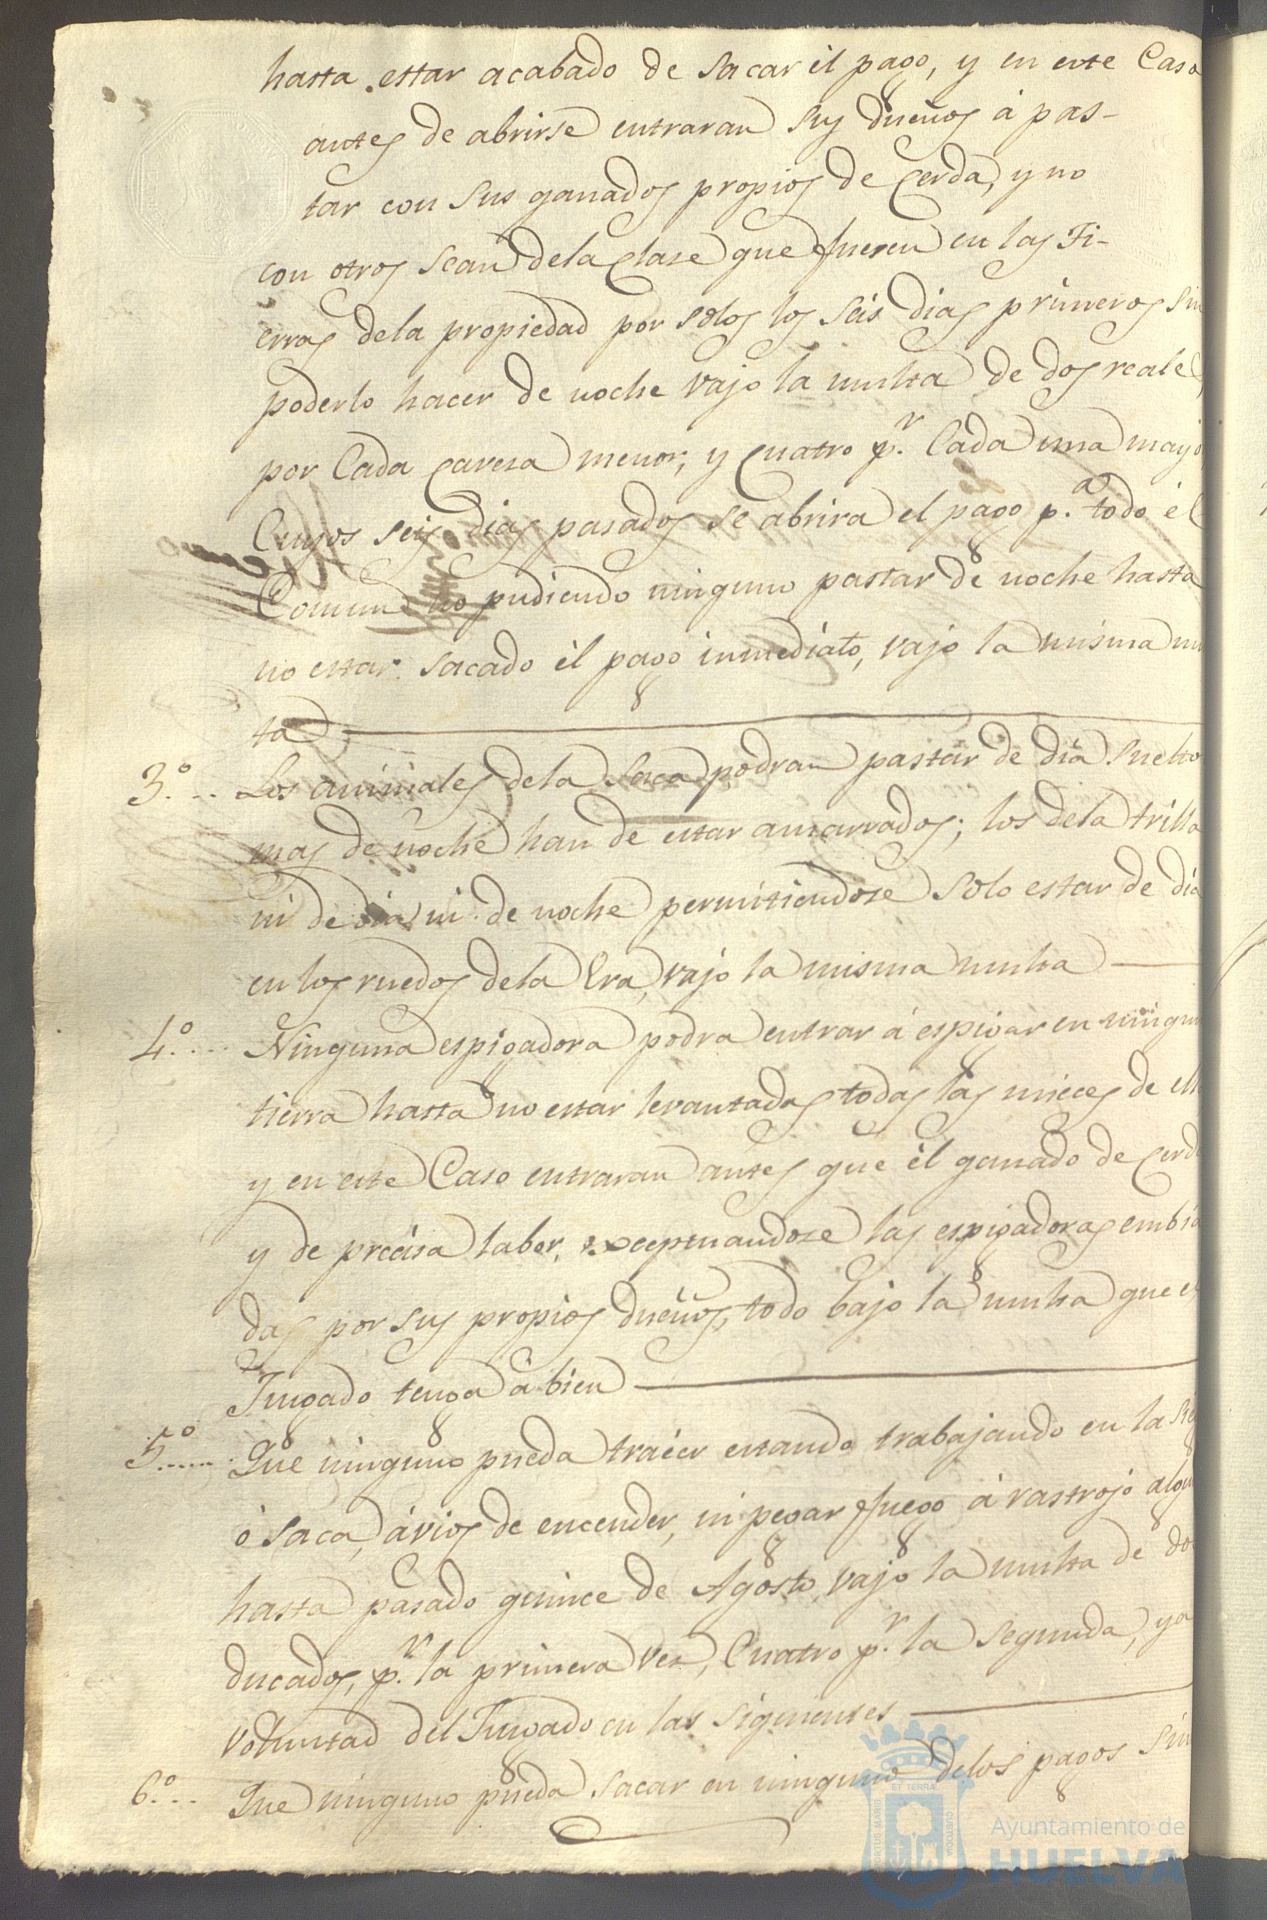 hasta estar acabado de sacar él pago, y en este Caso
antes de abrirse entraran sus dueños á pas-
tar con sus ganados propios de Cerda, y no
con otros sean dela Clase que fueren en las Ti-
erras dela propiedad por solos los seis dias primeros sin
poderlo hacer de noche vajo la multa de dos reales
por Cada Caveza menor, y Cuatro pr. Cada una mayo
Cuyos seis dias pasados se abrira el pago pa. todo él
Comun no pudiendo ninguno pastar de noche hasta
no estar sacado él pago inmediato, vajo la misma mu
ta
3.º Los animales dela Saca podran pastar de dia Suelto
mas de noche han de estar amarrados; los dela trilla
ni de dia ni de noche permitiendose solo estar de dia
en los ruedos dela Era, vajo la misma multa
4.º Ninguna espigadora podra entrar á espigar en ningun
tierra hasta no estar levantadas todas las mieces de ell
y en este Caso entraran antes que él ganado de Cerd
y de precisa laber, exceptuandose las espigadoras embia
das por sus propios dueños, todo bajo la multa que es
Jusgado tenga á bien
5.º Que ninguno pueda traéer estando trabajando en la Se
ó saca, ávios de encender, ni pegar fuego á rastrojo algu
hasta pasado quince de Agosto, vajo la multa de do
ducados, pr. la primera vez, Cuatro pr. la segunda, y a
voluntad del Jusgado en las siguientes
6.º Que ninguno pueda sacar en ninguno delos pagos sin
PORTUS MARIS ET TERRAE CUSTODIA
Ayuntamiento de
HUELVA